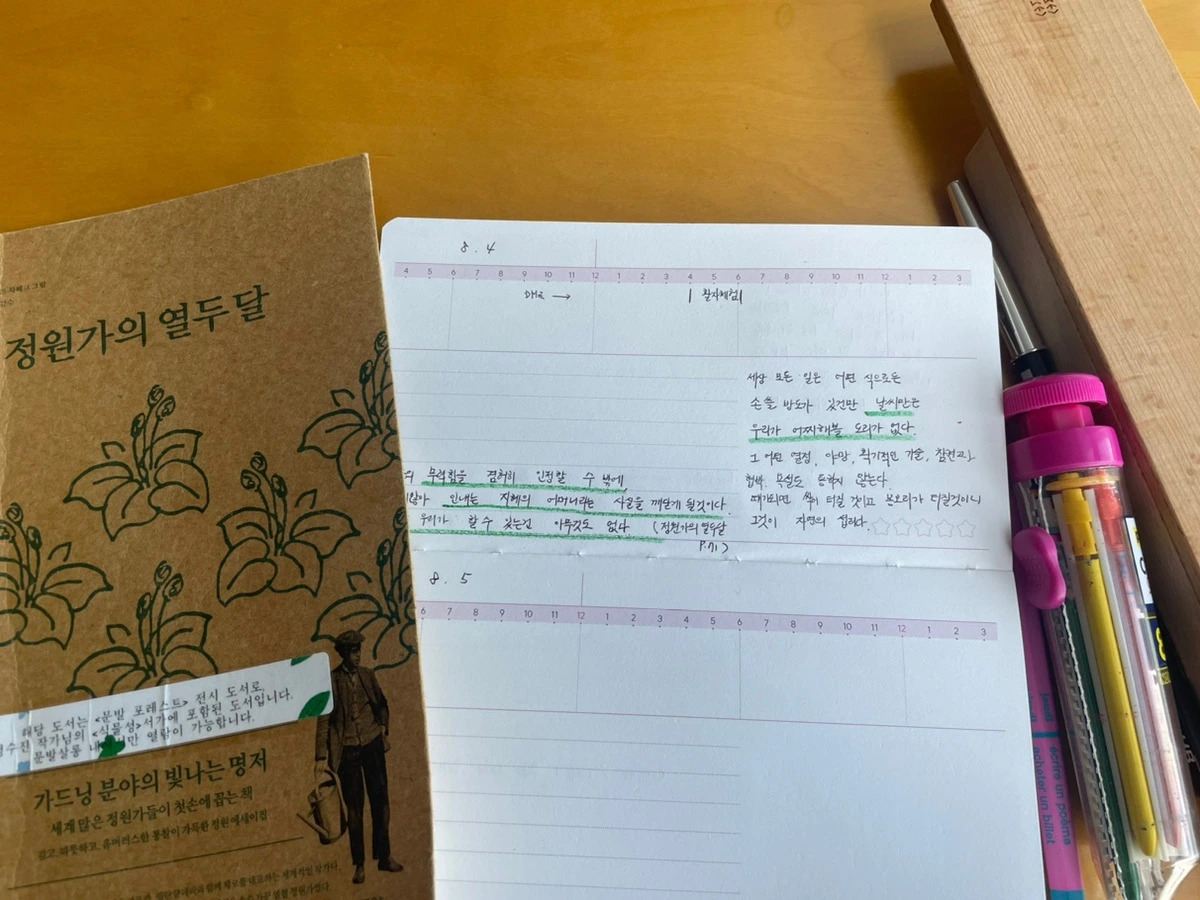 정원가의 열두 달
해당 도서는 <문발 포레스트> 전시 도서로,
작가님의 <식물성>서가에 포함된 도서입니다.
문발살롱 내 만 열람이 가능합니다.
가드닝 분야의 빛나는 명저
세계 많은 정원가들이 첫손에 꼽는 책
깊고 따뜻하고, 유머러스한 통찰이 가득한 정원 에세이집
8. 4
4 5 6 7 8 9 10 11 12 1 2 3 4 5 6 7 8 9 10 11 12 1 2 3
DMZ → | 활자체험|
세상 모든 일은 어떤 식으로든
손쓸 방도가 있건만 날씨만은
우리가 어찌해볼 도리가 없다.
그 어떤 열정, 야망, 획기적인 기술, 참견과
통하지 않는다.
때가되면 싹이 터질 것이고 봉오리가 터질것이니
그것이 자연의 섭리다.
의 무력함을 겸허히 인정할 수 밖에
인내는 지혜의 어머니라는 사실을 깨닫게 될것이다.
우리가 할 수 있는건 아무것도 없다. (정원가의 열두달
P.71)
8. 5
6 7 8 9 10 11 12 1 2 3 4 5 6 7 8 9 10 11 12 1 2 3
écrire un poème
acheter un billet